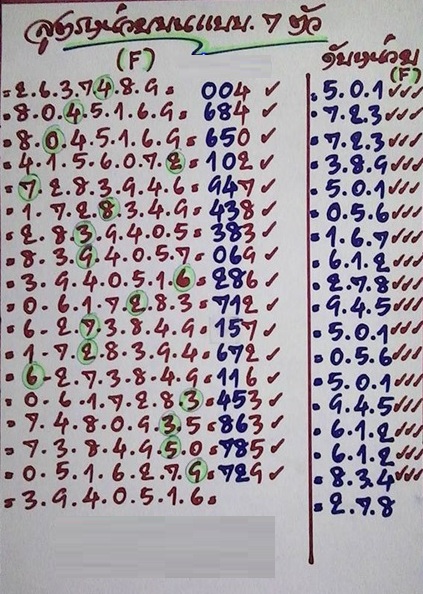 สูตรหน่วยบนแบบ. 7 ตัว
(F)
ดับหน่วย
(F)
= 2.6.3.7.4.8.9 = 004 ✓ = 5.0.1 ✓✓✓
= 8.0.4.5.1.6.9 = 684 ✓ = 7.2.3 ✓✓✓
= 8.0.4.5.1.6.9 = 650 ✓ = 7.2.3 ✓✓✓
= 4.1.5.6.0.7.2 = 102 ✓ = 3.8.9 ✓✓✓
= 7.2.8.3.9.4.6 = 947 ✓ = 5.0.1 ✓✓✓
= 1.7.2.8.3.4.9 = 438 ✓ = 0.5.6 ✓✓✓
= 2.8.3.9.4.0.5 = 383 ✓ = 1.6.7 ✓✓✓
= 8.3.9.4.0.5.7 = 069 ✓ = 6.1.2 ✓✓✓
= 3.9.4.0.5.1.6 = 286 ✓ = 2.7.8 ✓✓✓
= 0.6.1.7.2.8.3 = 712 ✓ = 9.4.5 ✓✓✓
= 6.2.7.3.8.4.9 = 157 ✓ = 5.0.1 ✓✓✓
= 1.7.2.8.3.9.4 = 672 ✓ = 0.5.6 ✓✓✓
= 6.2.7.3.8.4.9 = 116 ✓ = 5.0.1 ✓✓✓
= 0.6.1.7.2.8.3 = 453 ✓ = 9.4.5 ✓✓✓
= 7.4.8.0.9.3.5 = 863 ✓ = 6.1.2 ✓✓✓
= 7.3.8.4.9.5.0 = 785 ✓ = 6.1.2 ✓✓✓
= 0.5.1.6.2.7.9 = 729 ✓ = 8.3.4 ✓✓✓
= 3.9.4.0.5.1.6 = = 2.7.8